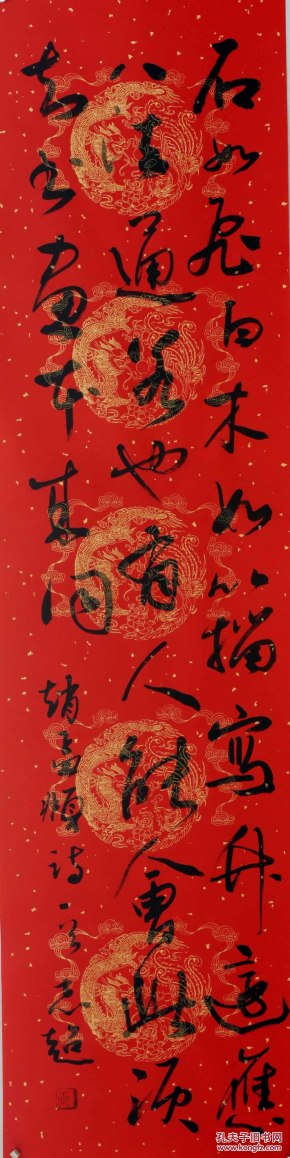 石如飛白木如籀寫竹還應
八法通若也有人能會此須
知書畫本來同
趙孟頫詩一首志超
孔夫子旧书网